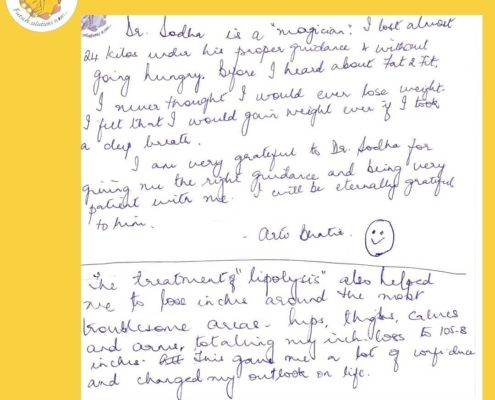 Dr. Sodha is a "magician". I lost almost
24 kilos under his proper guidance & without
going hungry. Before I heard about Fat 2 Fit,
I never thought I would ever lose weight.
I felt that I would gain weight even if I took
a deep breath.
I am very grateful to Dr. Sodha for
giving me the right guidance and being very
patient with me. I will be eternally grateful
to him.
- Arti
The treatment of "lipolysis" also helped
me to lose inches around the most
troublesome areas - hips, thighs, calves
and arms, totalling my inch loss to 105.8
inches. This gave me a lot of confidence
and changed my outlook on life.